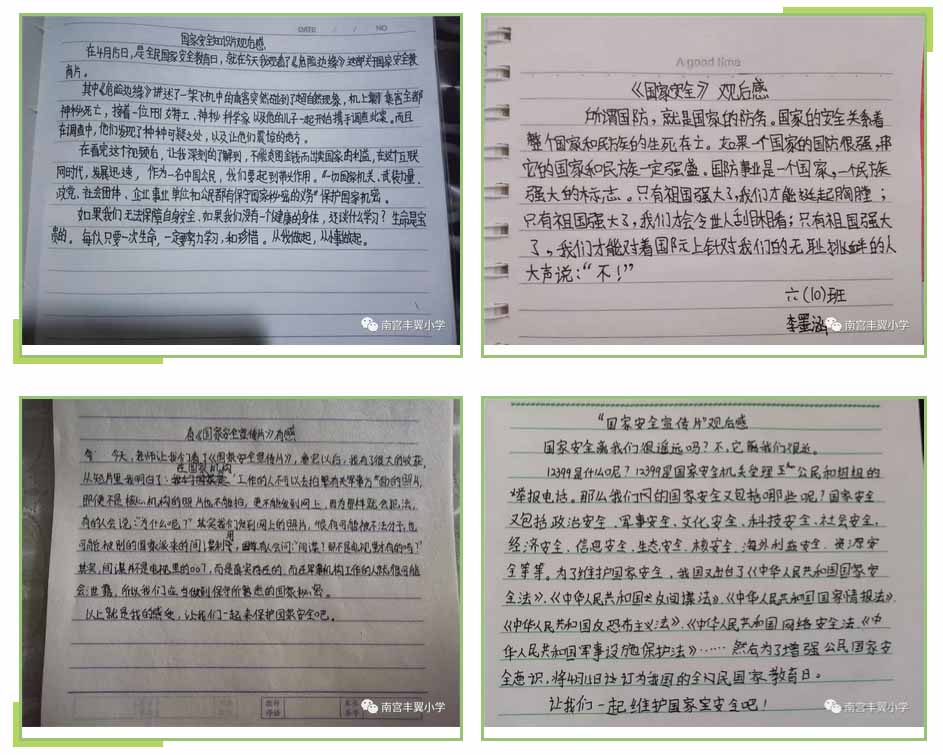 DATE / / NO
国家安全知识片观后感
在4月15日,是全民国家安全教育日,就在今天我观看了《危险边缘》这部关于国家安全教
育片。
其中《危险边缘》讲述了一架飞机中的乘客突然碰到了超自然现象,机上乘客全部
神秘死亡,接着一位用门女特工、神秘科学家以及他的儿子一起开始携手调查此案。而且
在调查中,他们发现了种种可疑之处,以及让他们震惊的地方。
在看完这个视频后,让我深刻的了解到,不能贪图金钱而出卖国家的利益,在这个互联
网时代,发展迅速,作为一名中国公民,我们要起到带头作用。“一切国家机关、武装力量、
政党、社会团体、企业事业单位和公民都有保守国家秘密的义务”保护国家机密。
如果我们无法保障自身安全,如果我们没有一个健康的身体,还谈什么学习?生命是宝
贵的。每人只要一次生命,一定要努力学习,和珍惜。从我做起,从小事做起。
南宫丰翼小学
A good time
《国家安全》观后感
所谓国防,就是国家的防务。国家的安全关系着
整个国家和民族的生死存亡。如果一个国家的国防很强,那
它的国家和民族一定强盛。国防事业是一个国家,一个民族
强大的标志。只有祖国强大了,我们才能挺起胸膛;
只有祖国强大了,我们才会令世人刮目相看;只有祖国强大
了,我们才能对着国际上针对我们的无耻挑衅的人
大声说:“不!”
六(10)班
李墨涵
南宫丰翼小学
看《国家安全宣传片》有感
今天,老师让我们看了《国家安全宣传片》,看完以后,我有了很大的收获,
在国家机构
从短片里我明白了:工作的人不可以去拍整有关军事方面的照片,
即便不是核心机构的照片也不能拍,更不能发到网上,因为那样就会犯法,
有的人会说:“为什么呢?”其实我们发到网上的照片,很有可能被不法分子,也
可能被别的国家派来的间谍利用,国军有人会问:“间谍?那不是电视里才有的吗?”
其实,间谍并不是电视里的007,而是真实存在的,而在军事机构工作的人就很可能
会泄露,所以我们应当做到保守所熟悉的国家秘密。
以上就是我的感受,让我们一起来保护国家安全吧。
南宫丰翼小学
“国家安全宣传片”观后感
国家安全离我们很遥远吗?不,它离我们很近。
12399是什么呢?12399是国家安全机关受理公民和组织的
举报电话。那么我们的国家安全又包括哪些呢?国家安全
又包括政治安全、军事安全、文化安全、科技安全、社会安全、
经济安全、信息安全、生态安全、核安全、海外利益安全、资源安
全等等。为了维护国家安全,我国又出台了《中华人民共和国国家安
全法》、《中华人民共和国反间谍法》、《中华人民共和国国家情报法》、
《中华人民共和国反恐怖主义法》、《中华人民共和国网络安全法、《中
华人民共和国军事设施保护法》……然后为了增强公民国家安
全意识,将4月15日订为我国的全民国家教育日。
让我们一起维护国家安全吧!
南宫丰翼小学